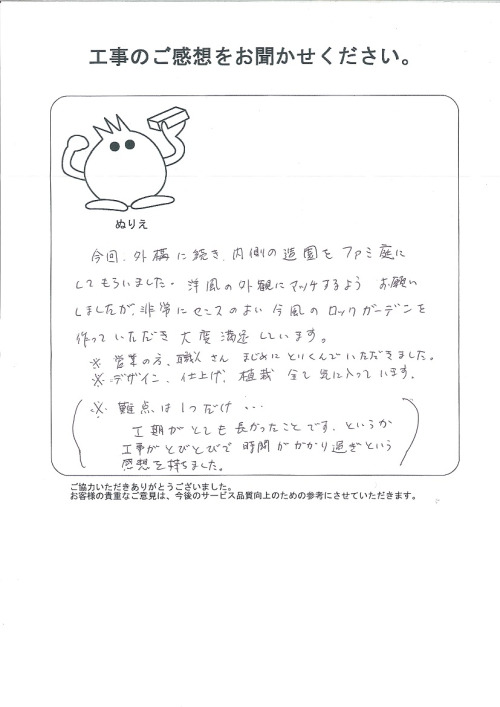 工事のご感想をお聞かせください。
ぬりえ
今回、外構に続き、内側の造園をファミ庭に
してもらいました。洋風の外観にマッチするよう お願い
しましたが、非常にセンスのよい今風のロックガーデンを
作っていただき 大変満足しています。
※ 営業の方、職人さん まじめにとりくんでいただきました。
※ デザイン、仕上げ、植栽 全て気に入っています。
※ 難点は1つだけ…
工期がとても長かったことです、というか
工事がとびとびで時間がかかり過ぎという
感想を持ちました。
ご協力いただきありがとうございました。
お客様の貴重なご意見は、今後のサービス品質向上のための参考にさせていただきます。